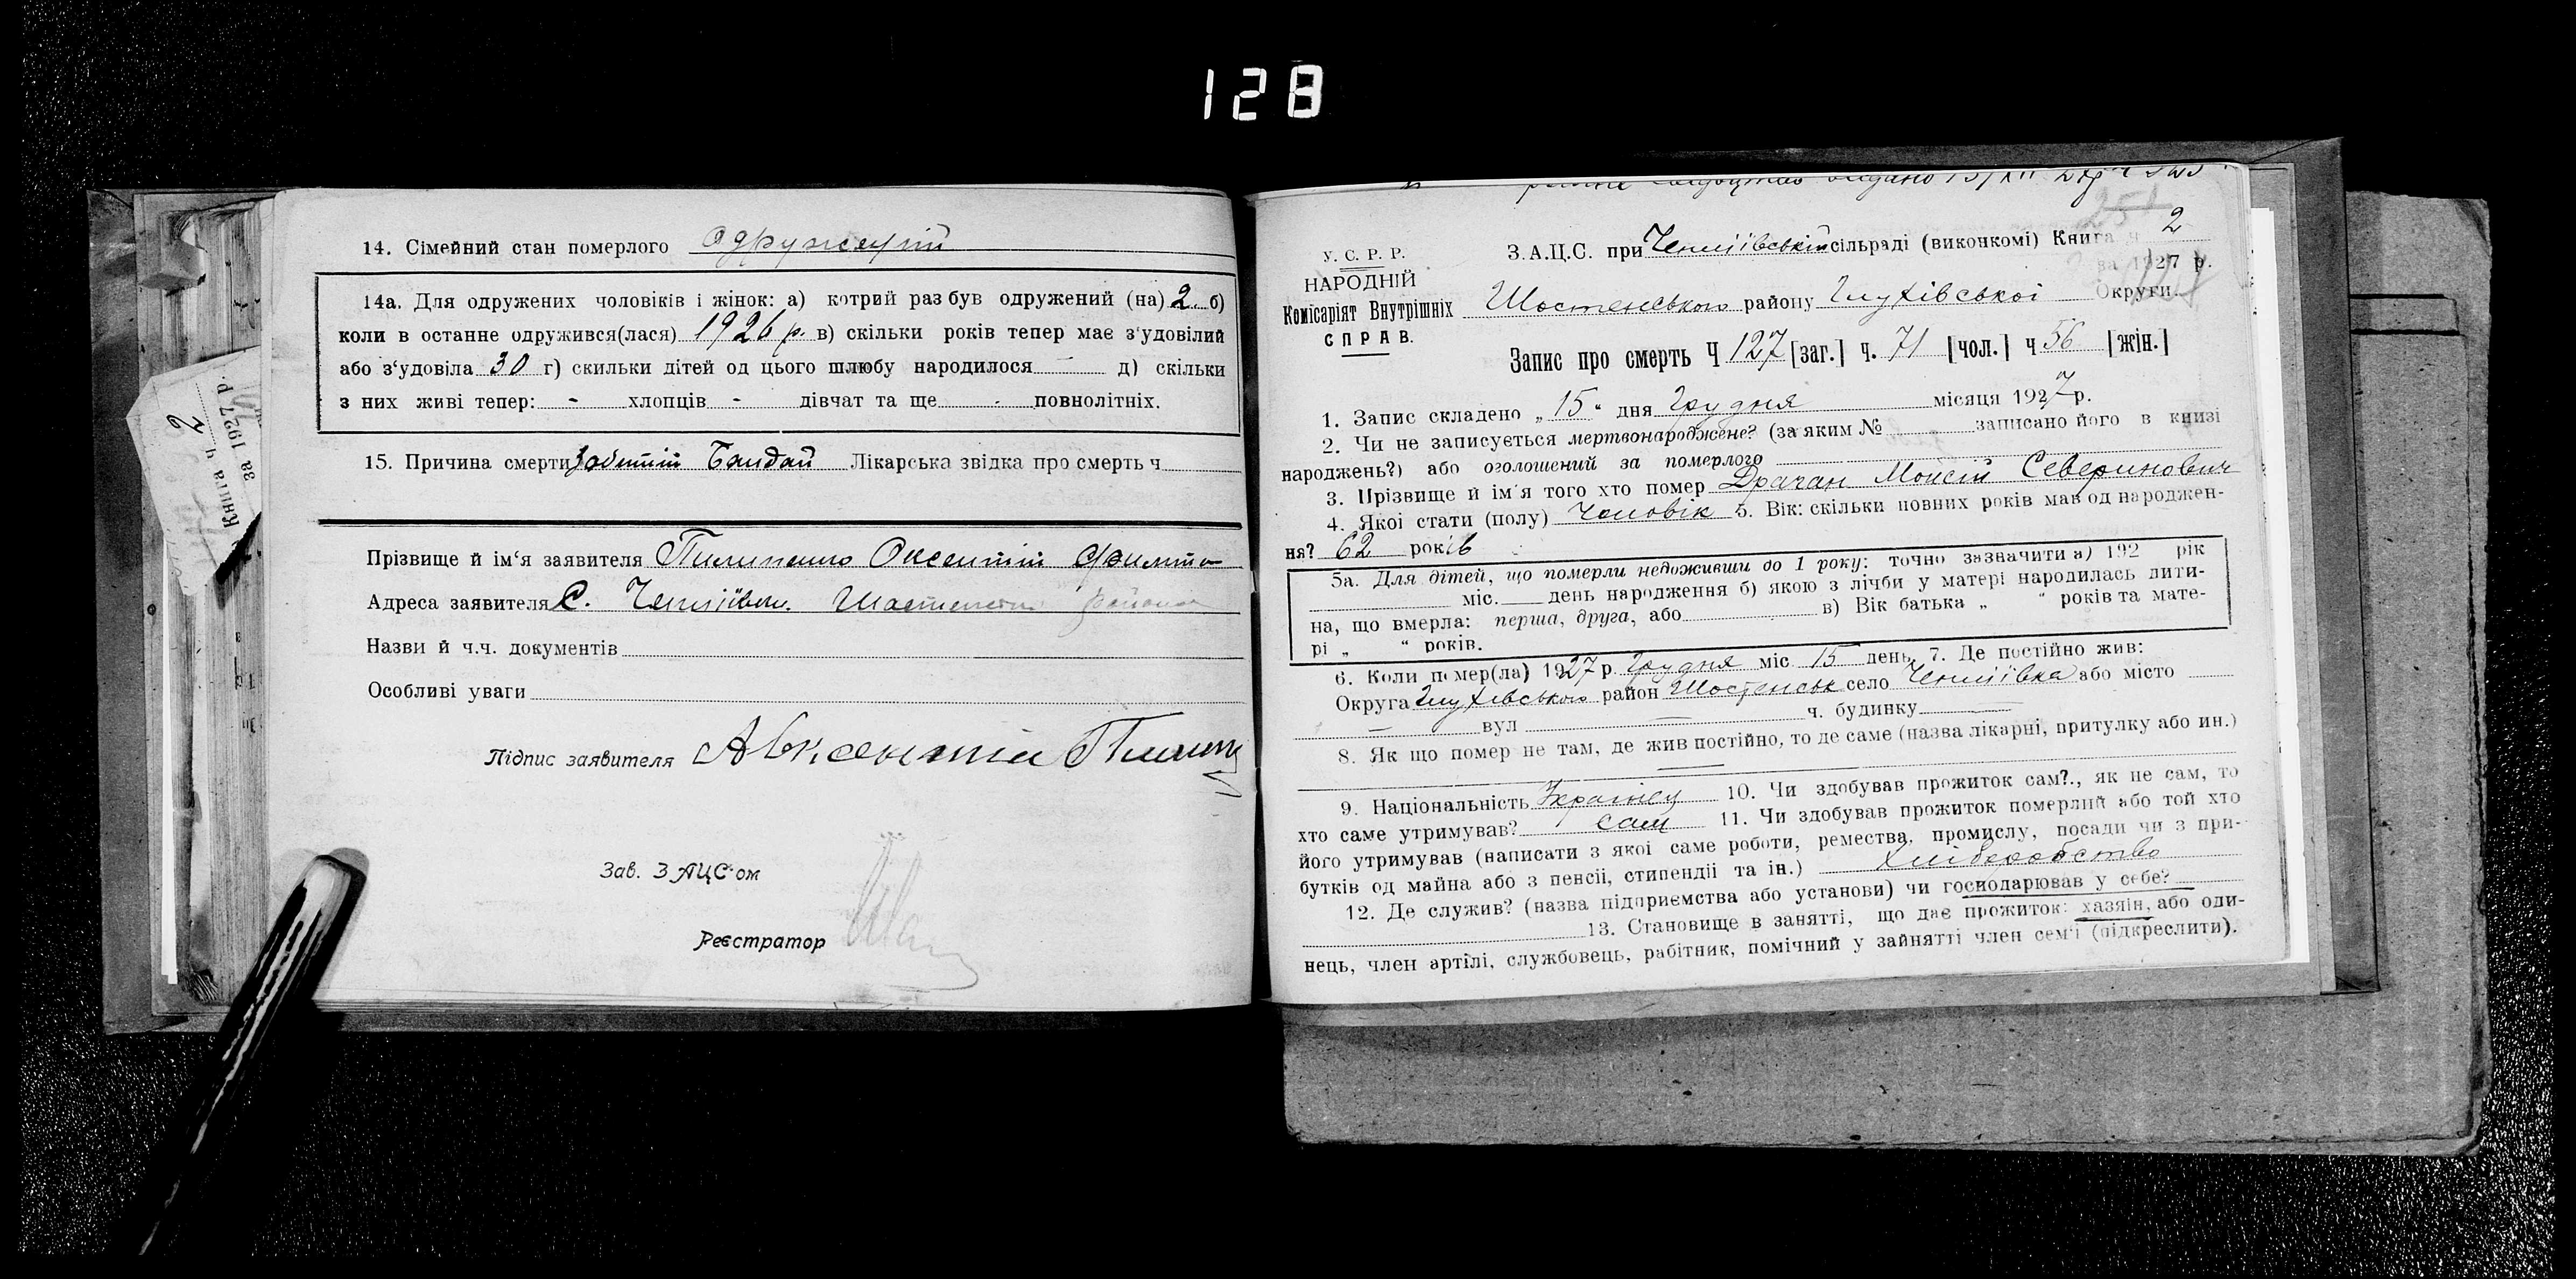 128
14. Сімейний стан померлого одружений
14а. Для одружених чоловіків і жінок: а) котрий раз був одружений (на) 2 б)
коли в останне одружився(лася) 1926 р. в) скільки років тепер має з'удовілий
або з'удовіла 30 г) скильки дітей од цього шлюбу народилося — д) скільки
з них живі тепер: - хлопців - дівчат та ще - повнолітніх.
15. Причина смерти Лікарська звідка про смерть ч
Прізвище й ім'я заявителя Пилипенко Оксентій
Адреса заявителя С.
Назви й ч.ч. документів
Особливі уваги
Підпис заявителя Авксентій
Зав. ЗАЦС-ом
Реєстратор
Книга ч 2
за 1927 р.
У. С. Р. Р.
НАРОДНІЙ
Комісаріят Внутрішніх
СПРАВ.
З.А.Ц.С. при сільраді (виконкомі) Книга ч 2
за 1927 р.
Шостенського району Глухівської Округи
Запис про смерть Ч 127 [заг.] ч. 71 [чол.] ч 56 [жін.]
1. Запис складено „15" дня Грудня місяця 1927 р.
2. Чи не записується мертвонароджене? (за яким № записано його в книзі
народжень?) або оголошений за померлого
3. Прізвище й ім'я того хто помер Драган Моисій Северинович
4. Якої стати (полу) Чоловік 5. Вік: скільки повних років мав од народжен-
ня? 62 років
5а. Для дітей, що померли недоживши до 1 року: точно зазначити а) 192 рік
міс. день народження б) якою з лічби у матері народилась дити-
на, що вмерла: перша, друга, або в) Вік батька „ " років та мате-
рі „ " років.
6. Коли помер(ла) 1927 р. Грудня міс. 15 день. 7. Де постійно жив:
Округа Глухівського район Шостенськ село або місто
— вул — ч. будинку —
8. Як що помер не там, де жив постійно, то де саме (назва лікарні, притулку або ин.)
9. Національність Українец 10. Чи здобував прожиток сам?., як не сам, то
хто саме утримував? сам 11. Чи здобував прожиток померлий або той хто
його утримував (написати з якоі саме роботи, ремества, промислу, посади чи з при-
бутків од майна або з пенсіі, стипендіі та ін.) хліборобство
12. Де служив? (назва підприємства або установи) чи господарював у себе?
13. Становище в занятті, що дає прожиток: хазяін, або оди-
нець, член артілі, службовець, рабітник, помічний у зайнятті член сем'і (підкреслити).